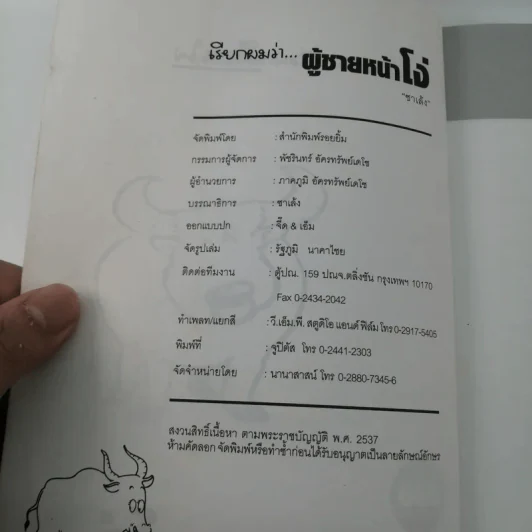 เรียกผมว่า... ผู้ชายหน้าโง่
"ซาเล้ง"
จัดพิมพ์โดย : สำนักพิมพ์รอยยิ้ม
กรรมการผู้จัดการ : พัชรินทร์ อัครทรัพย์เดโช
ผู้อำนวยการ : ภาคภูมิ อัครทรัพย์เดโช
บรรณาธิการ : ซาเล้ง
ออกแบบปก : จี๊ด & เอ็ม
จัดรูปเล่ม : รัฐภูมิ นาคาไชย
ติดต่อทีมงาน : ตู้ปณ. 159 ปณจ.ตลิ่งชัน กรุงเทพฯ 10170
Fax 0-2434-2042
ทำเพลท/แยกสี : วี.เอ็ม.พี. สตูดิโอ แอนด์ ฟิล์ม โทร 0-2917-5405
พิมพ์ที่ : จูปิตัส โทร 0-2441-2303
จัดจำหน่ายโดย : นานาสาสน์ โทร 0-2880-7345-6
สงวนสิทธิ์เนื้อหา ตามพระราชบัญญัติ พ.ศ. 2537
ห้ามคัดลอก จัดพิมพ์หรือทำซ้ำก่อนได้รับอนุญาตเป็นลายลักษณ์อักษร